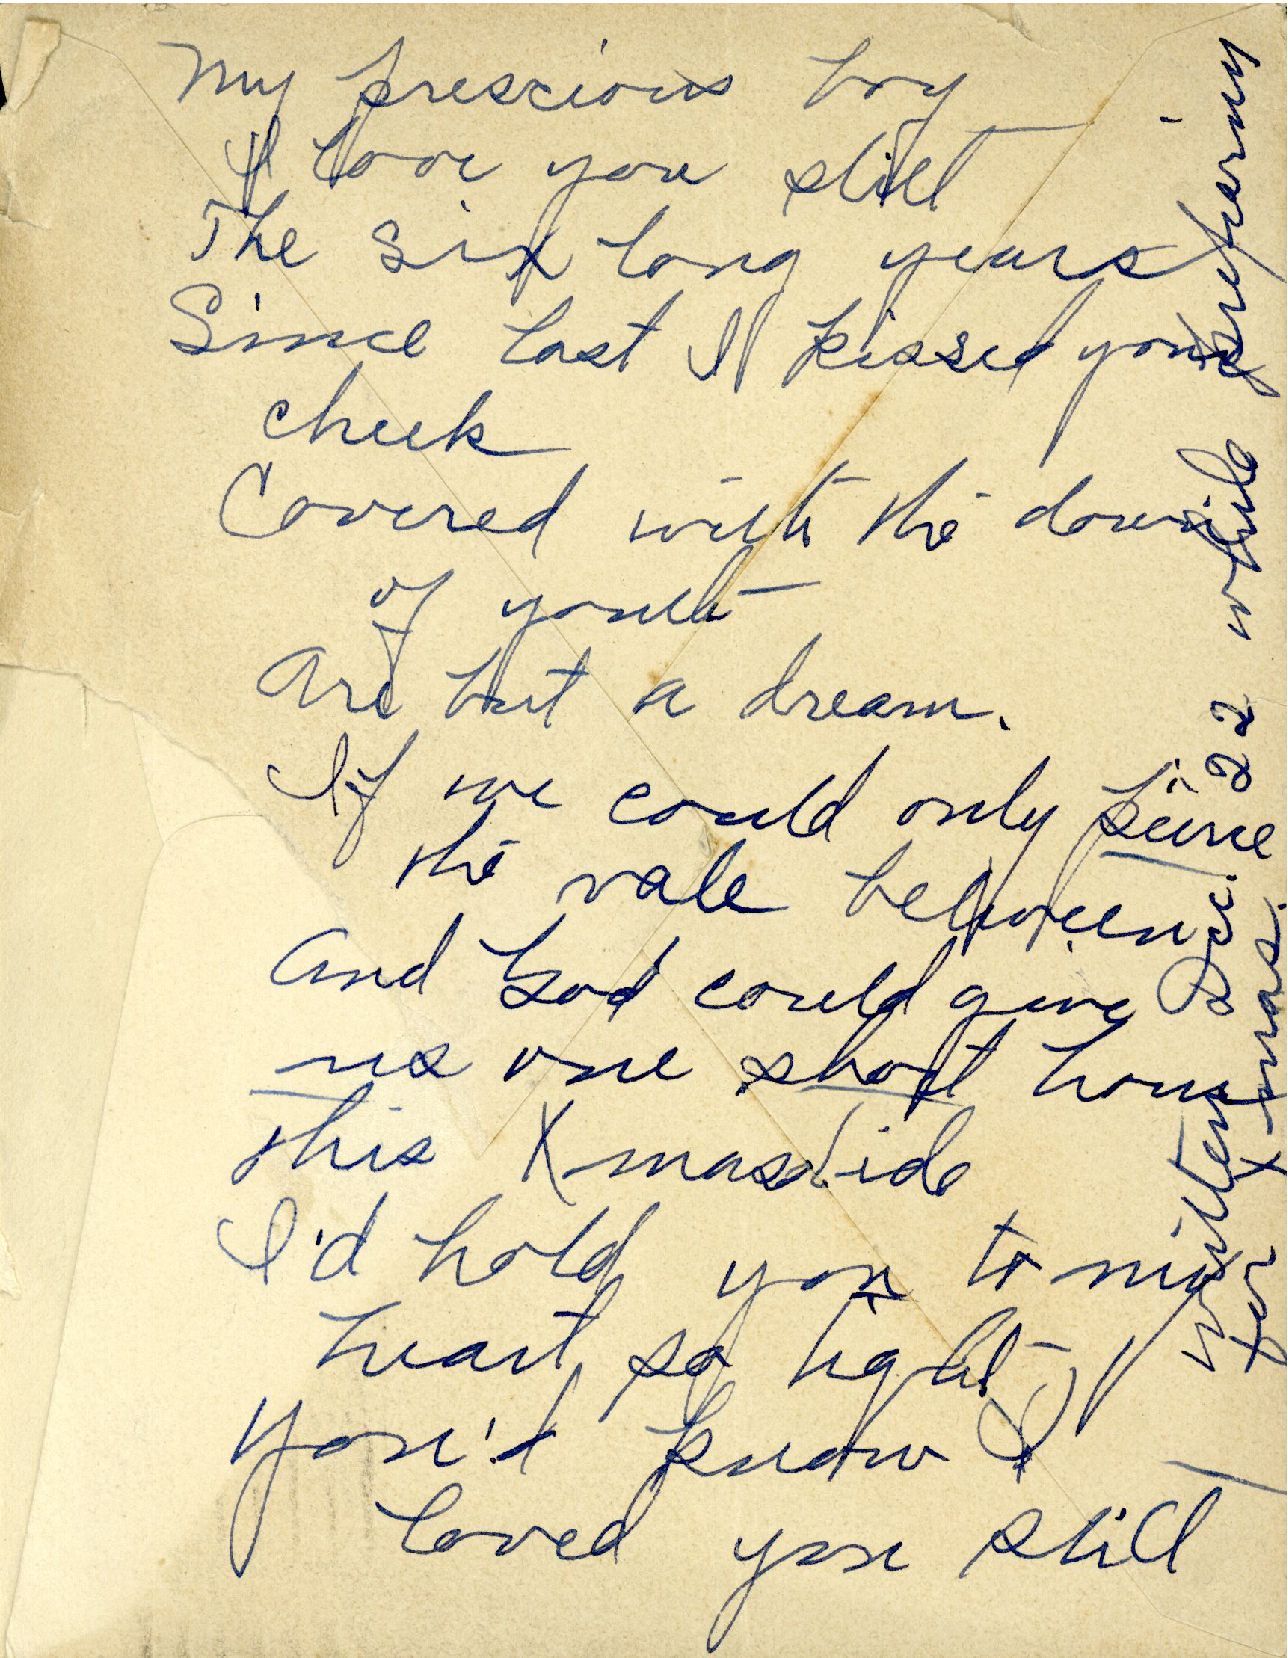 My prescious boy
I love you still
The six long years
Since last I kissed your
cheek
Covered with the down
of youth
Are but a dream.
If we could only
the vale between
And God could give
us one short hour
This Xmastide
I'd hold you to my
heart so tight
You'd know I
loved you still
Written Dec. 22 while preparing
for X-mas.